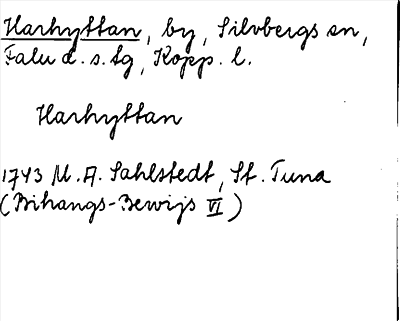 Harhyttan, by, Silvbergs sn,
Falu d. s. tg, Kopp. l.
Harhyttan
1743 M. A. Sahlstedt, St. Tuna
(Bihangs-Bewijs VI)